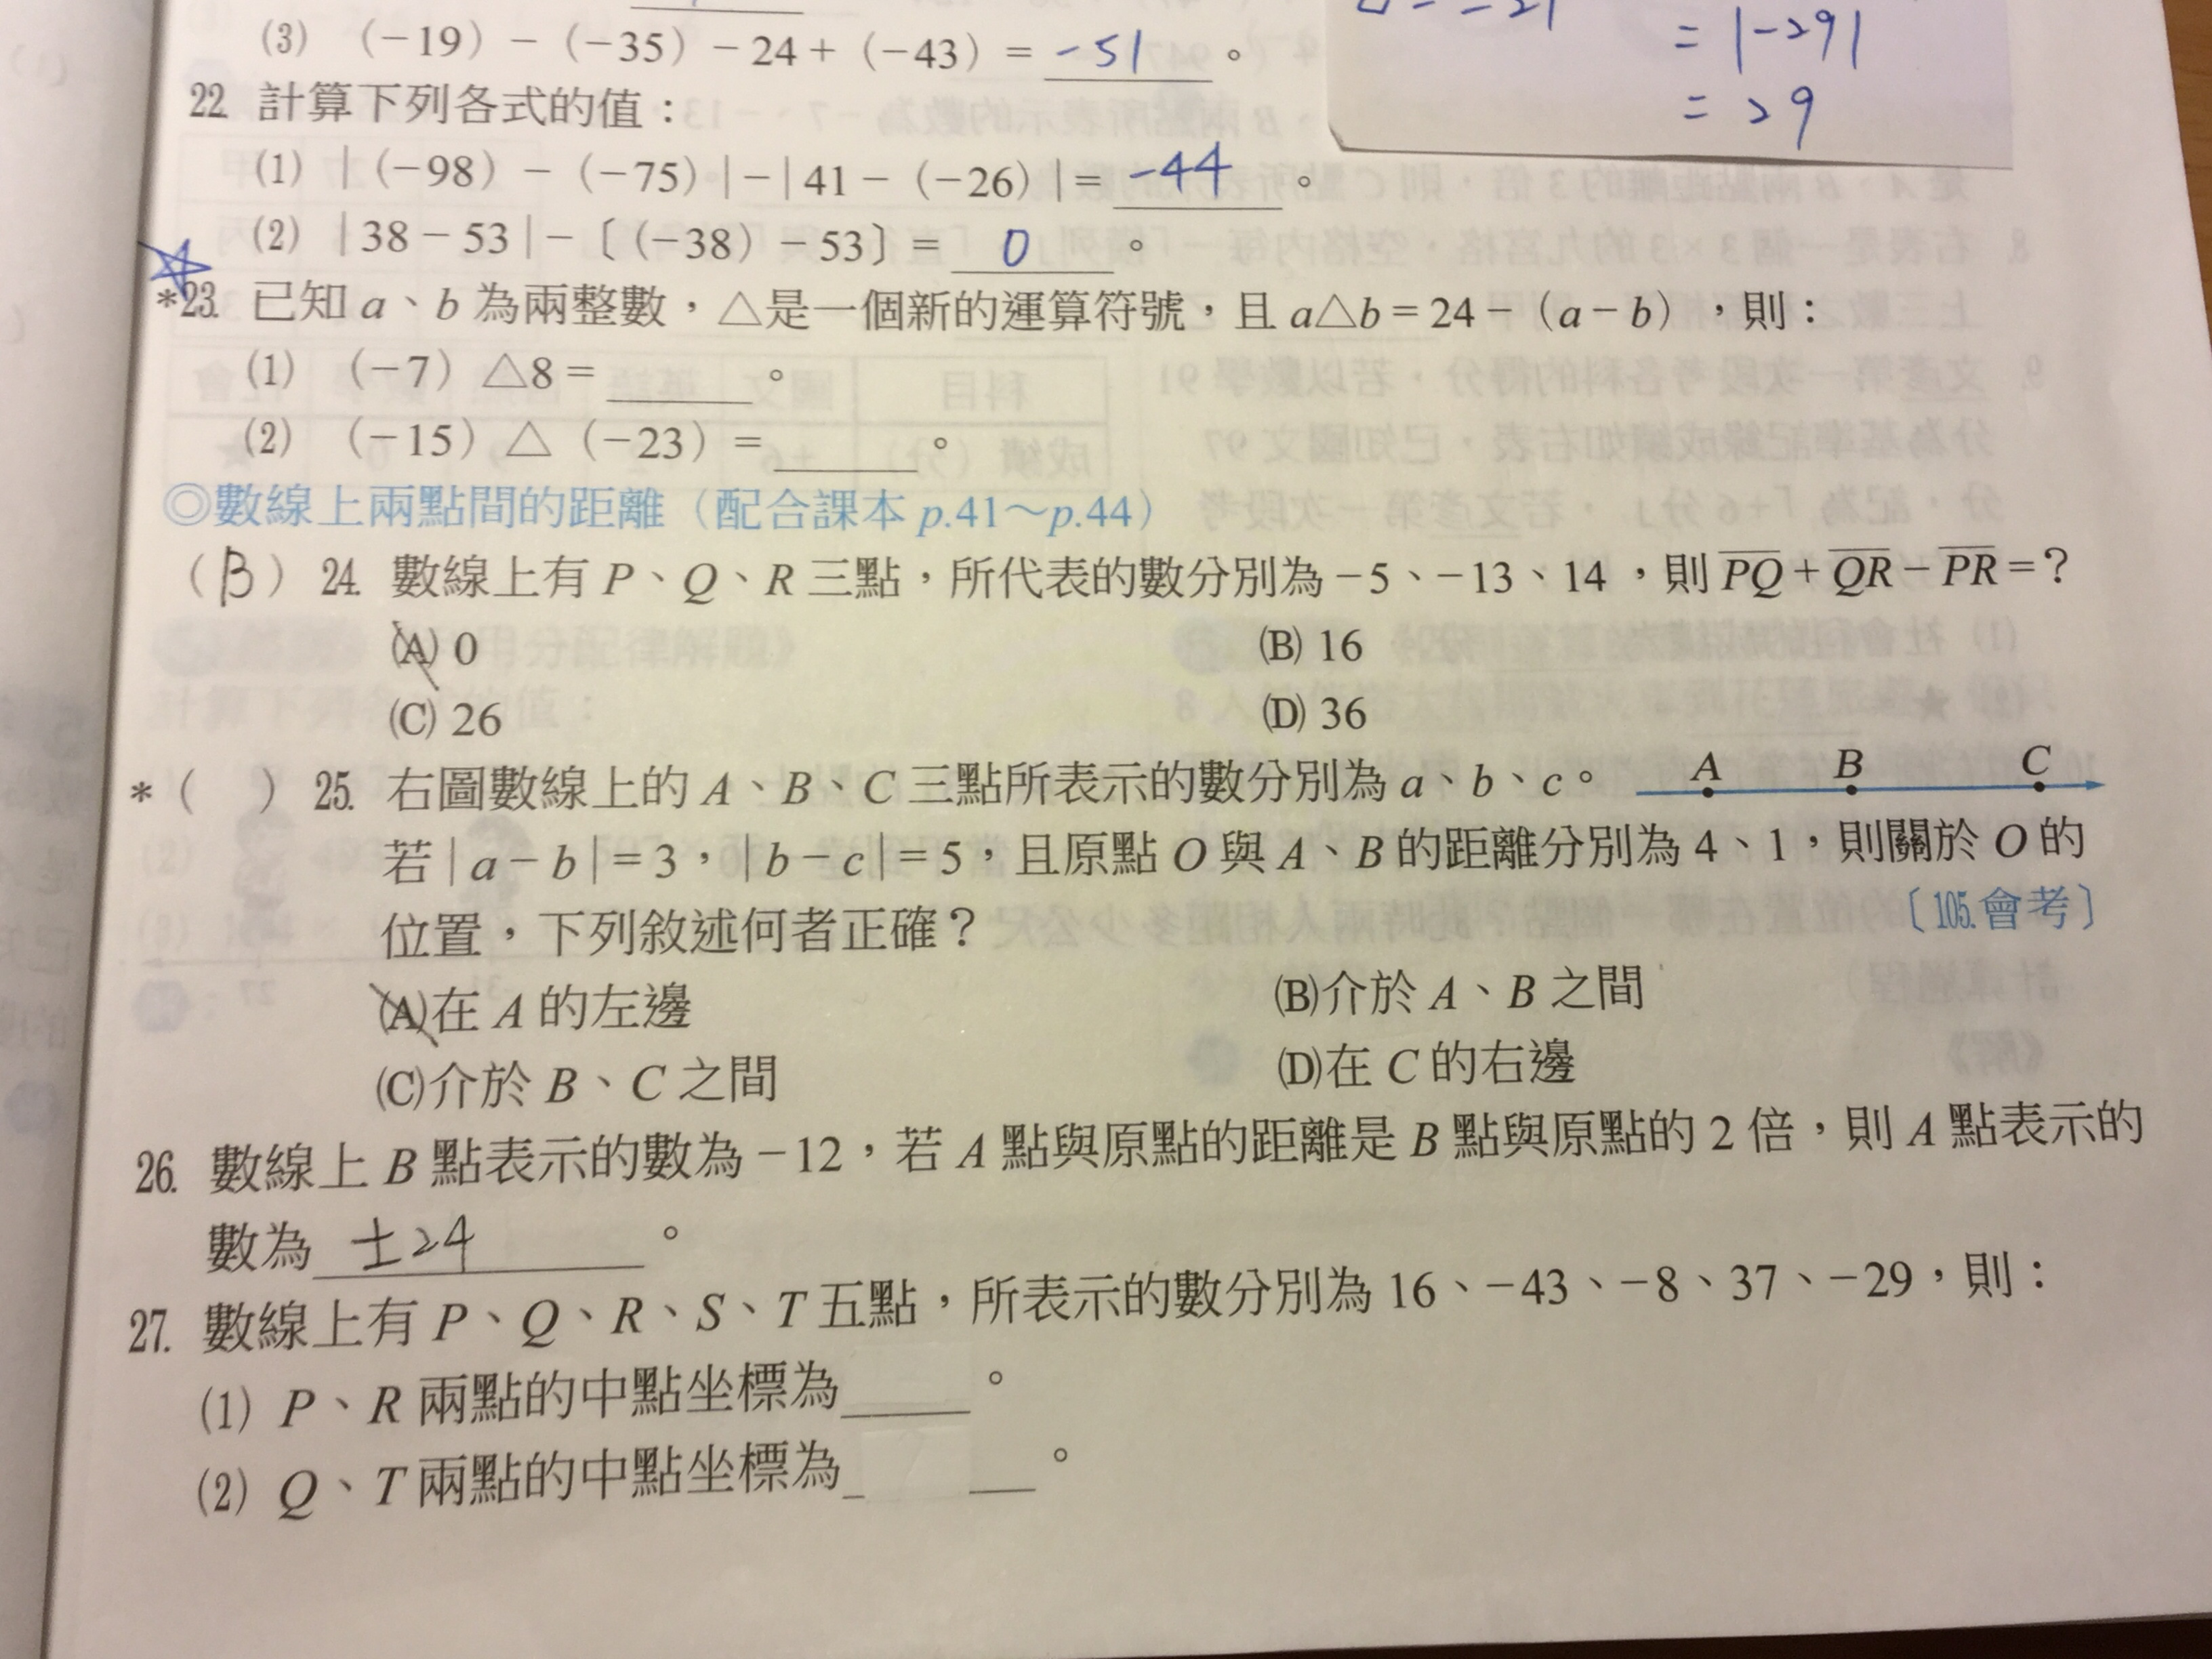 (3) (−19) − (−35) − 24 + (−43) = -51 。
= |-29|
= 29
22. 計算下列各式的值：
(1) | (−98) − (−75) | − | 41 − (−26) | = -44 。
(2) | 38 − 53 | − 〔 (−38) − 53 〕 = 0 。
*23. 已知 a、b 為兩整數，△是一個新的運算符號，且 a△b = 24 − (a − b)，則：
(1) (−7) △8 = 。
(2) (−15) △ (−23) = 。
◎數線上兩點間的距離（配合課本 p.41～p.44）
(B) 24. 數線上有 P、Q、R 三點，所代表的數分別為 −5、−13、14，則 PQ + QR − PR = ？
(A) 0
(B) 16
(C) 26
(D) 36
A B C
*( ) 25. 右圖數線上的 A、B、C 三點所表示的數分別為 a、b、c。
若 | a − b | = 3，| b − c | = 5，且原點 O 與 A、B 的距離分別為 4、1，則關於 O 的
位置，下列敘述何者正確？ 〔105.會考〕
(A)在 A 的左邊
(B)介於 A、B 之間
(C)介於 B、C 之間
(D)在 C 的右邊
26. 數線上 B 點表示的數為 −12，若 A 點與原點的距離是 B 點與原點的 2 倍，則 A 點表示的
數為 ±24 。
27. 數線上有 P、Q、R、S、T 五點，所表示的數分別為 16、−43、−8、37、−29，則：
(1) P、R 兩點的中點坐標為 。
(2) Q、T 兩點的中點坐標為 。